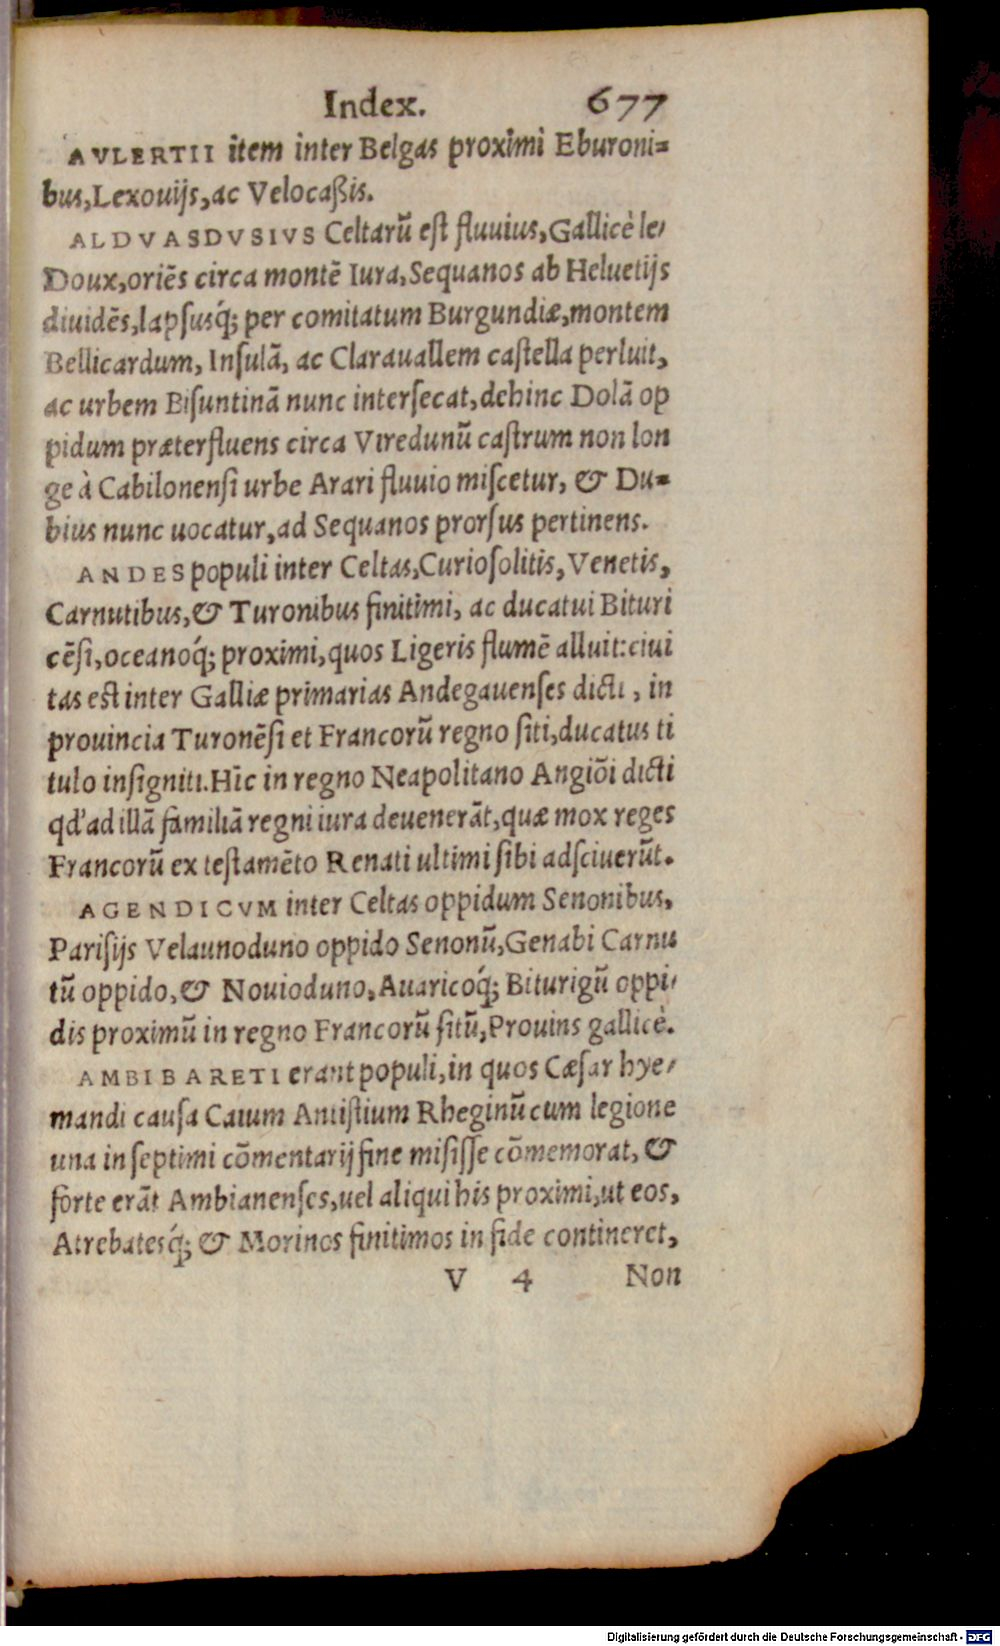 Index. 677
AVLERTII item inter Belgas proximi Eburoni=
bus, Lexouijs, ac Velocaßis.
ALDVASDVSIVS Celtarũ eſt fluuius, Gallicè le/
Doux, oriẽs circa montẽ Iura, Sequanos ab Heluetijs
diuidẽs, lapſusq́; per comitatum Burgundiæ, montem
Bellicardum, Inſulã, ac Clarauallem caſtella perluit,
ac urbem Biſuntinã nunc interſecat, dehinc Dolã op
pidum præterfluens circa Viredunũ caſtrum non lon
ge à Cabilonenſi urbe Arari fluuio miſcetur, & Du=
bius nunc uocatur, ad Sequanos prorſus pertinens.
ANDES populi inter Celtas, Curioſolitis, Venetis,
Carnutibus, & Turonibus finitimi, ac ducatui Bituri
cẽſi, oceanoq́; proximi, quos Ligeris flumẽ alluit: ciui
tas eſt inter Galliæ primarias Andegauenſes dicti, in
prouincia Turonẽſi et Francorũ regno ſiti, ducatus ti
tulo inſigniti. Hic in regno Neapolitano Angiõi dicti
qd' ad illã familiã regni iura deuenerãt, quæ mox reges
Francorũ ex teſtamẽto Renati ultimi ſibi adſciuerũt.
AGENDICVM inter Celtas oppidum Senonibus,
Pariſijs Velaunoduno oppido Senonũ, Genabi Carnu
tũ oppido, & Nouioduno, Auaricoq́; Biturigũ oppi/
dis proximũ in regno Francorũ ſitũ, Prouins gallicè.
AMBIBARETI erant populi, in quos Cæſar hye/
mandi cauſa Caium Antiſtium Rheginũ cum legione
una in ſeptimi cõmentarij fine miſiſſe cõmemorat, &
forte erãt Ambianenſes, uel aliqui his proximi, ut eos,
Atrebatesq́; & Morinos finitimos in fide contineret,
V 4 Non
Digitalisierung gefördert durch die Deutsche Forschungsgemeinschaft - DFG